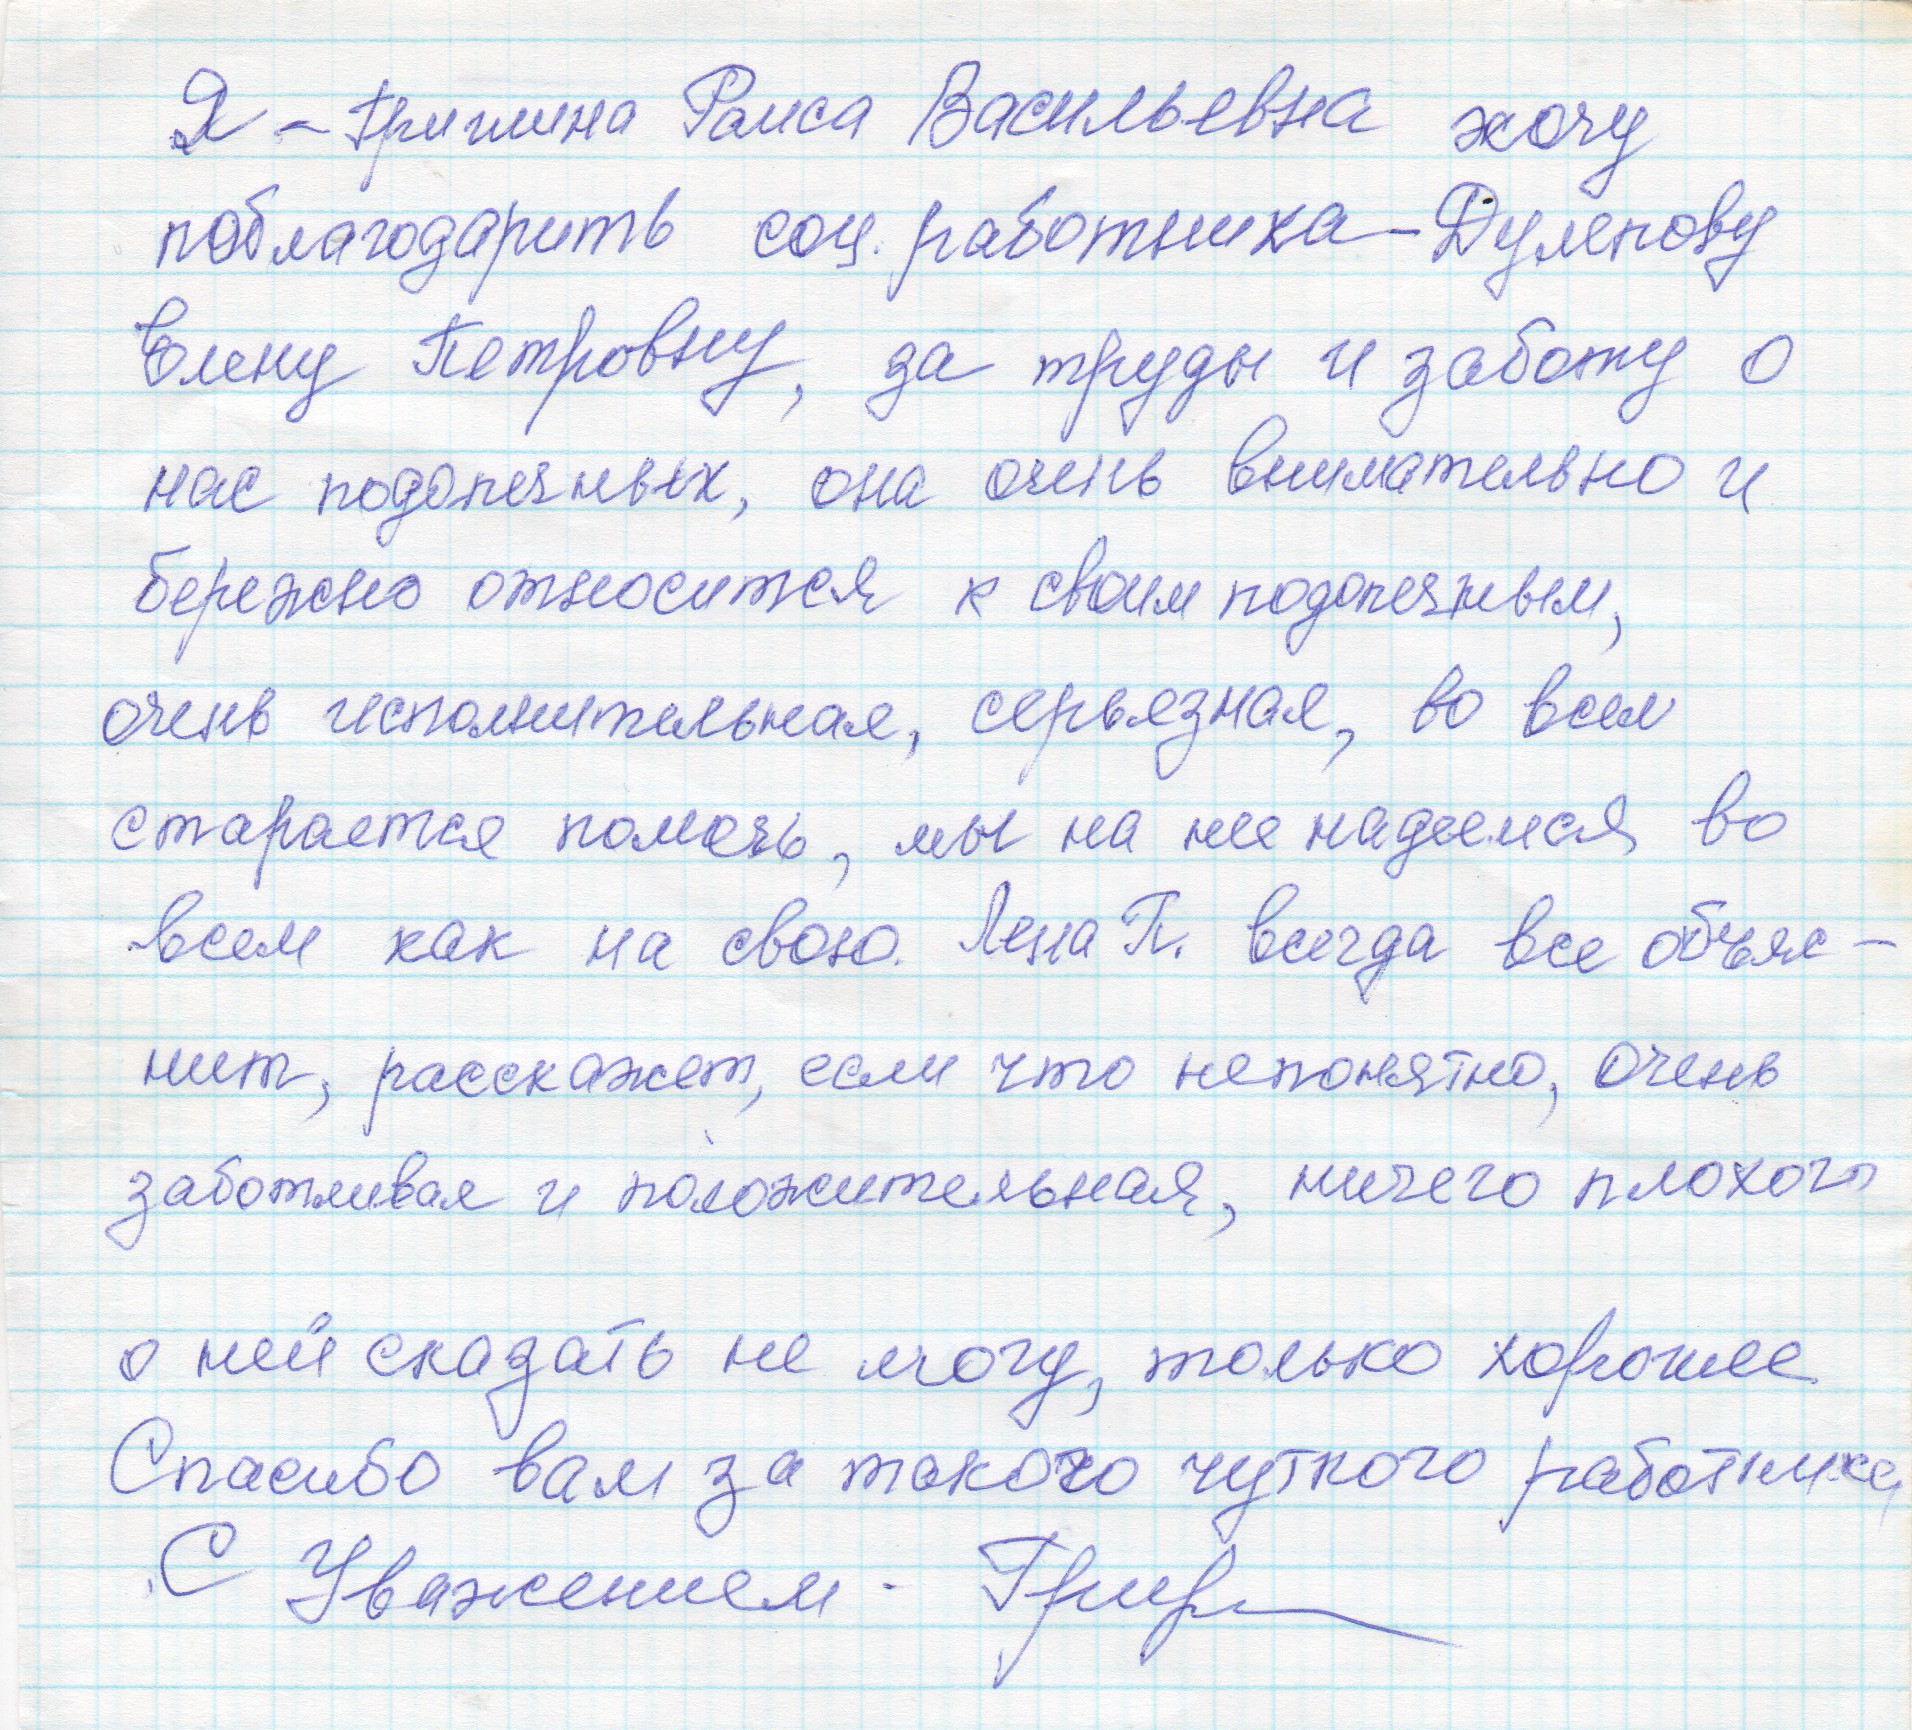 Я – Гришина Раиса Васильевна хочу
поблагодарить соц. работника – Дулепову
Елену Петровну, за труды и заботу о
нас подопечных, она очень внимательно и
бережно относится к своим подопечным,
очень исполнительная, серьезная, во всем
старается помочь, мы на нее надеемся во
всем как на свою. Лена П. всегда все объяс–
нит, расскажет, если что непонятно, очень
заботливая и положительная, ничего плохого
о ней сказать не могу, только хорошее
Спасибо вам за такого чуткого работника,
С Уважением -